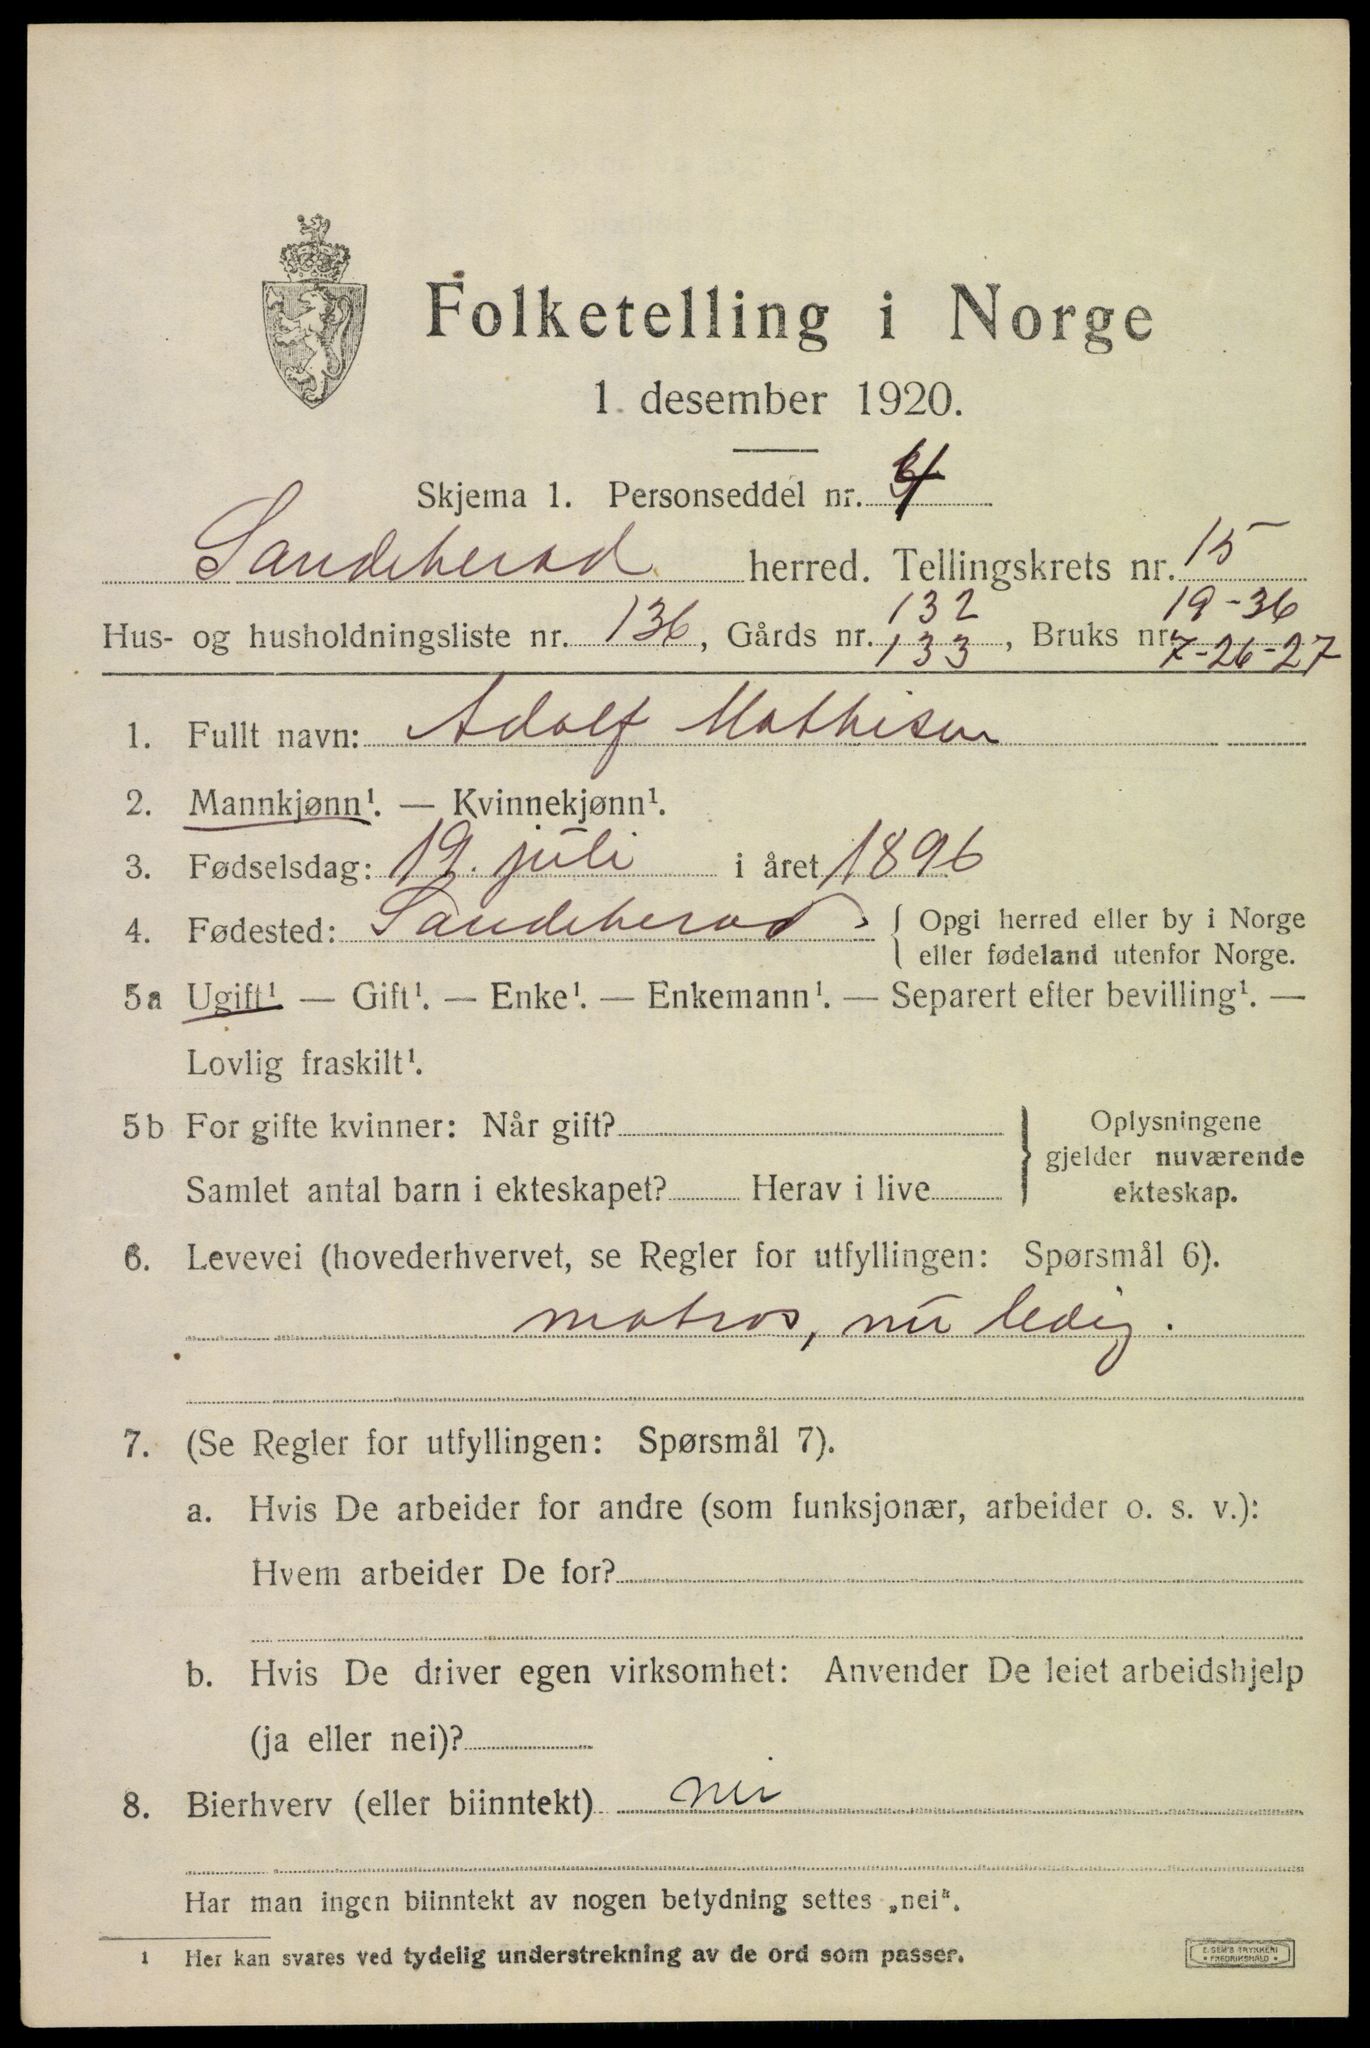 Folketelling i Norge
1. desember 1920.
Skjema 1. Personseddel nr. 4
Sandeherad herred. Tellingskrets nr. 15
Hus- og husholdningsliste nr. 136, Gårds nr. 132 133, Bruks nr. 19-36 7-26-27
1. Fullt navn: Adolf Mathisen
2. Mannkjønn¹. — Kvinnekjønn¹.
3. Fødselsdag: 19. juli i året 1896
4. Fødested: Sandeherad { Opgi herred eller by i Norge
eller fødeland utenfor Norge.
5a Ugift¹ — Gift¹. — Enke¹. — Enkemann¹. — Separert efter bevilling¹. —
Lovlig fraskilt¹.
5b For gifte kvinner: Når gift?
Samlet antal barn i ekteskapet? Herav i live
Oplysningene
gjelder nuværende
ekteskap.
6. Levevei (hovederhvervet, se Regler for utfyllingen: Spørsmål 6).
matros, nu ledig.
7. (Se Regler for utfyllingen: Spørsmål 7).
a. Hvis De arbeider for andre (som funksjonær, arbeider o. s. v.):
Hvem arbeider De for?
b. Hvis De driver egen virksomhet: Anvender De leiet arbeidshjelp
(ja eller nei)?
8. Bierhverv (eller biinntekt) nei
Har man ingen biinntekt av nogen betydning settes „nei".
1 Her kan svares ved tydelig understrekning av de ord som passer.
E. SEM'S TRYKKERI
• FREDRIKSHALD •